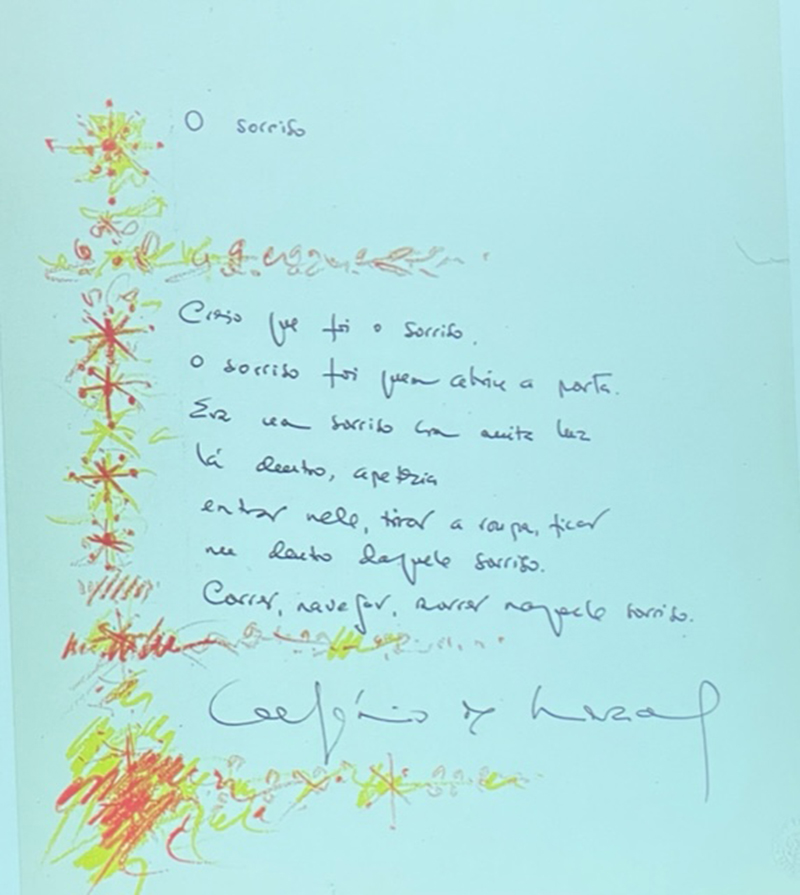 O sorriso
Creio que foi o sorriso,
o sorriso foi quem abriu a porta.
Era um sorriso com muita luz
lá dentro, apetecia
entrar nele, tirar a roupa, ficar
nu dentro daquele sorriso.
Correr, navegar, morrer naquele sorriso.
Eugénio de Andrade